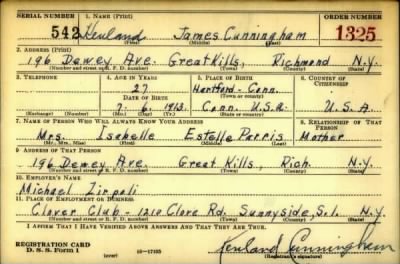 SERIAL NUMBER 1. NAME (Print) ORDER NUMBER
542 Kenland James Cunningham 1325
(First) (Middle) (Last)
2. ADDRESS (Print)
196 Dewey Ave. Great Kills, Richmond N.Y.
(Number and street or R. F. D. number) (Town) (County) (State)
3. TELEPHONE 4. AGE IN YEARS 5. PLACE OF BIRTH 6. COUNTRY OF CITIZENSHIP
27 Hartford - Conn.
DATE OF BIRTH (Town)
7. 6. 1913. Conn. U.S.A. U.S.A
(Exchange) (Number) (Mo.) (Day) (Yr.) (State or country)
7. NAME OF PERSON WHO WILL ALWAYS KNOW YOUR ADDRESS 8. RELATIONSHIP OF THAT PERSON
Mrs. Isabelle Estelle Parris Mother
(Mr., Mrs., Miss) (First) (Middle) (Last)
9. ADDRESS OF THAT PERSON
196 Dewey Ave. Great Kills, Rich. N.Y.
(Number and street or R. F. D. number) (Town) (County) (State)
10. EMPLOYER'S NAME
Michael Zirpoli
11. PLACE OF EMPLOYMENT OR BUSINESS
Clover Club - 1210 Clove Rd. Sunnyside, S.I. N.Y.
(Number and street or R. F. D. number) (Town) (County) (State)
I AFFIRM THAT I HAVE VERIFIED ABOVE ANSWERS AND THAT THEY ARE TRUE.
REGISTRATION CARD Kenland Cunningham
D. S. S. Form 1 (over) 16-17105 (Registrant's signature)